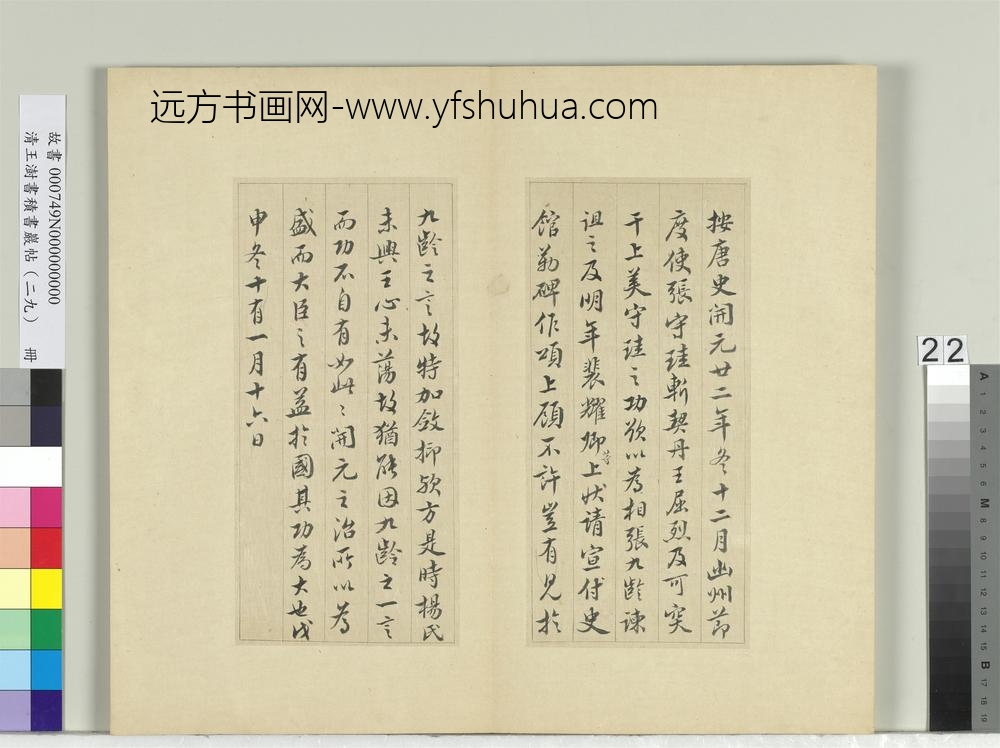 远方书画网-www.yfshuhua.com
故書 000749N000000000
清王澍書積書巖帖（二九） 冊
按唐史開元廿二年冬十二月幽州節
度使張守珪斬契丹王屈烈及可突
干上美守珪之功欲以為相張九齡諫
詛之及明年裴耀卿等上狀請宣付史
館勒碑作頌上願不許豈有見於
九齡之言故特加斂抑歟方是時楊氏
未興王心未蕩故猶能因九齡之一言
而功不自有如此此開元之治所以為
盛而大臣之有益於國其功為大也戊
申冬十有一月十六日
22
A 1 2 3 4 5 6 M 8 9 10 11 12 13 14 15 B 17 18 19